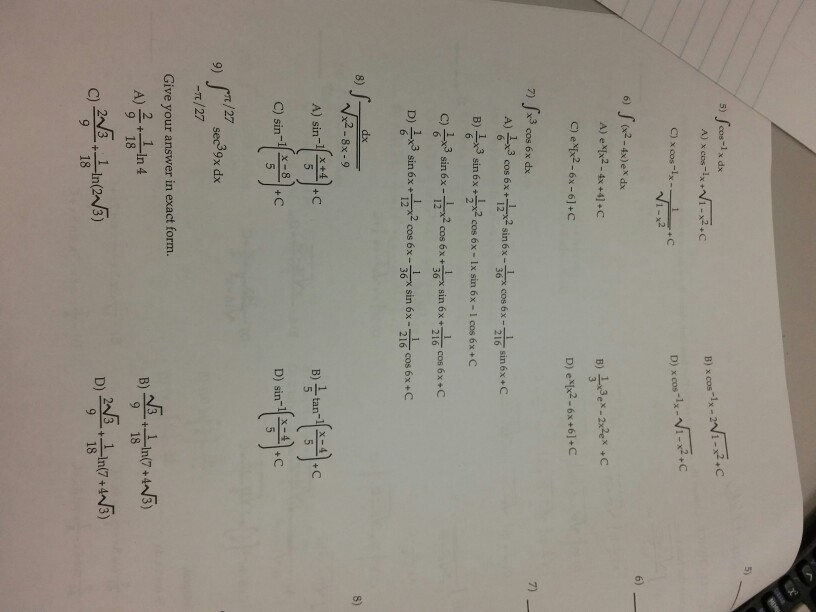 5) ∫ cos⁻¹ x dx
A) x cos⁻¹x + √(1 - x²) + C
B) x cos⁻¹x - 2√(1 - x²) + C
C) x cos⁻¹x - 1/√(1 - x²) + C
D) x cos⁻¹x - √(1 - x²) + C
5)
6) ∫ (x² - 4x) eˣ dx
A) eˣ[x² - 4x + 4] + C
B) 1/3 x³eˣ - 2x²eˣ + C
C) eˣ[x² - 6x - 6] + C
D) eˣ[x² - 6x + 6] + C
6)
7) ∫ x³ cos 6x dx
A) 1/6 x³ cos 6x + 1/12 x² sin 6x - 1/36 x cos 6x - 1/216 sin 6x + C
B) 1/6 x³ sin 6x + 1/2 x² cos 6x - 1x sin 6x - 1 cos 6x + C
C) 1/6 x³ sin 6x - 1/12 x² cos 6x + 1/36 x sin 6x + 1/216 cos 6x + C
D) 1/6 x³ sin 6x + 1/12 x² cos 6x - 1/36 x sin 6x - 1/216 cos 6x + C
7)
8) ∫ dx/√(x² - 8x - 9)
A) sin⁻¹((x + 4)/5) + C
B) 1/5 tan⁻¹((x - 4)/5) + C
C) sin⁻¹((x - 8)/5) + C
D) sin⁻¹((x - 4)/5) + C
8)
9) ∫ π/27 -π/27 sec³9x dx
Give your answer in exact form.
A) 2/9 + 1/18 ln 4
B) √3/9 + 1/18 ln(7 + 4√3)
C) 2√3/9 + 1/18 ln(2√3)
D) 2√3/9 + 1/18 ln(7 + 4√3)